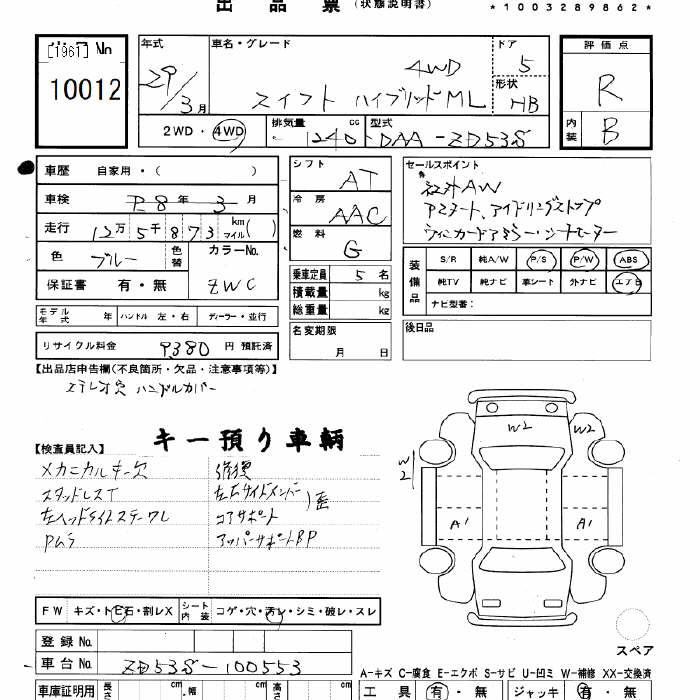 出品票 (状態説明書) *1003289862*
[1961] No 10012
年式 29/3月
車名・グレード 4WD スイフト ハイブリッドML
ドア 5
形状 HB
評価点 R
内装 B
2WD・4WD 排気量 1240 cc 型式 DAA-ZD53S
車歴 自家用・( )
車検 R8年 3月
走行 12万5千873 km マイル( )
色 ブルー 色替 カラーNo. ZWC
保証書 有・無
シフト AT
冷房 AAC
燃料 G
乗車定員 5名
積載量 kg
総重量 kg
セールスポイント
社外AW
Pスタート、アイドリングストップ
装備品 S/R 純A/W P/S P/W ABS
純TV 純ナビ 革シート 外ナビ エアB
ナビ型番:
モデル年式 年 ハンドル 左・右 ディーラー・並行
名変期限 月 日
後日品
リサイクル料金 9,380 円 預託済
【出品店申告欄(不良箇所・欠品・注意事項等)】
ステレオ欠 ハンドルカバー
キー預り車輌
【検査員記入】
メカニカルキー欠 修復
スタッドレスT 左右サイドメンバー)歪
コアサポート
Pムラ アッパーサポートBP
W2 W2
W2
A1 A1
FW キズ・トE石・割レX シート内装 コゲ・穴・汚レ・シミ・破レ・スレ
登録No.
車台No. ZD53S-100553
スペア
A-キズ C-腐食 E-エクボ S-サビ U-凹ミ W-補修 XX-交換済
車庫証明用 長さ cm 幅 cm 高さ cm 工具 有・無 ジャッキ 有・無